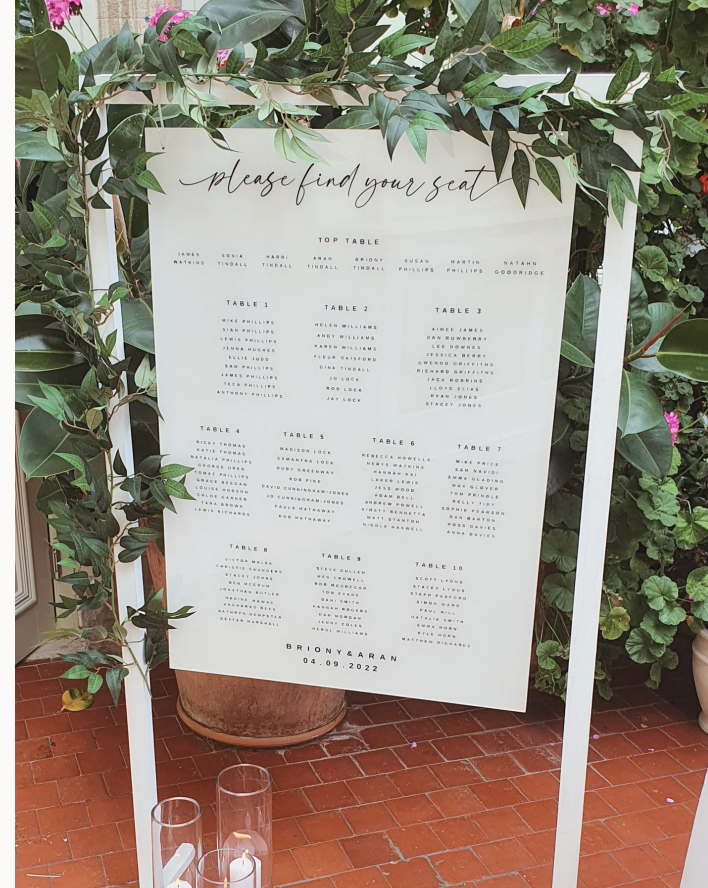 please find your seat
TOP TABLE
JAMES WATKINS
SONIA TINDALL
HARRI TINDALL
ARAN TINDALL
BRIONY TINDALL
SUSAN PHILLIPS
MARTIN PHILLIPS
NATAHN GOODRIDGE
TABLE 1
MIKE PHILLIPS
SIAN PHILLIPS
LEWIS PHILLIPS
JENNA HUGHES
ELLIE JUDD
SAM PHILLIPS
JAMES PHILLIPS
TECA PHILLIPS
ANTHONY PHILLIPS
TABLE 2
HELEN WILLIAMS
ANDY WILLIAMS
KAREN WILLIAMS
FLEUR
GINA TINDALL
JO LOCK
ROB LOCK
JAY LOCK
TABLE 3
AIMEE JAMES
DAN ROWBERRY
LEE DOWNES
JESSICA BERRY
GWENNO GRIFFITHS
RICHARD GRIFFITHS
JACK ROBBINS
LLOYD ELIAS
RYAN JONES
STACEY JONES
TABLE 4
RICKY THOMAS
KATIE THOMAS
NATALIA PHILLIPS
GEORGE UREN
PHILLIPS
GRACE
LOUISE ROBSON
CHLOE
SARA BROWN
LEWIS RICHARDS
TABLE 5
MADISON LOCK
SAMANTHA LOCK
RUBY GREENWAY
ROB KIRK
DAVID CUNNINGHAM-JONES
JO CUNNINGHAM-JONES
PAULA HATHAWAY
ROB HATHAWAY
TABLE 6
REBECCA HOWELLS
NERYS WATKINS
HANNAH RAI
LEWIS
JESS HOOD
ADAM BELL
ANDREW POWELL
KIRSTY BENNETTA
MATT STANTON
NICOLE HASWELL
TABLE 7
MIKE PRICE
SAM NAVIDI
EMMA GLADING
MAX GLOVER
TOM PRINGLE
KELLY TIDY
SOPHIE PEARSON
DAN BANTON
ROSS DAVIES
ANNA DAVIES
TABLE 8
VICTOR MALEK
CHRISTIE SAUNDERS
STACEY JOHNS
BEN MCGAIN
JONATHAN BUTLER
DEXTER MARSHALL
TABLE 9
STEVE CULLEN
MEG CROWELL
ROB
TOM EVANS
DANI SMITH
HANNAH MOORE
DAN MORGAN
JENNY COYLE
WILLIAMS
TABLE 10
SCOTT LYONS
STACEY LYONS
STEPH
SIMON WARD
PAUL HILL
NATALIE SMITH
EMMA HORN
KYLE HORN
MATTHEW RICHARDS
BRIONY&ARAN
04.09.2022